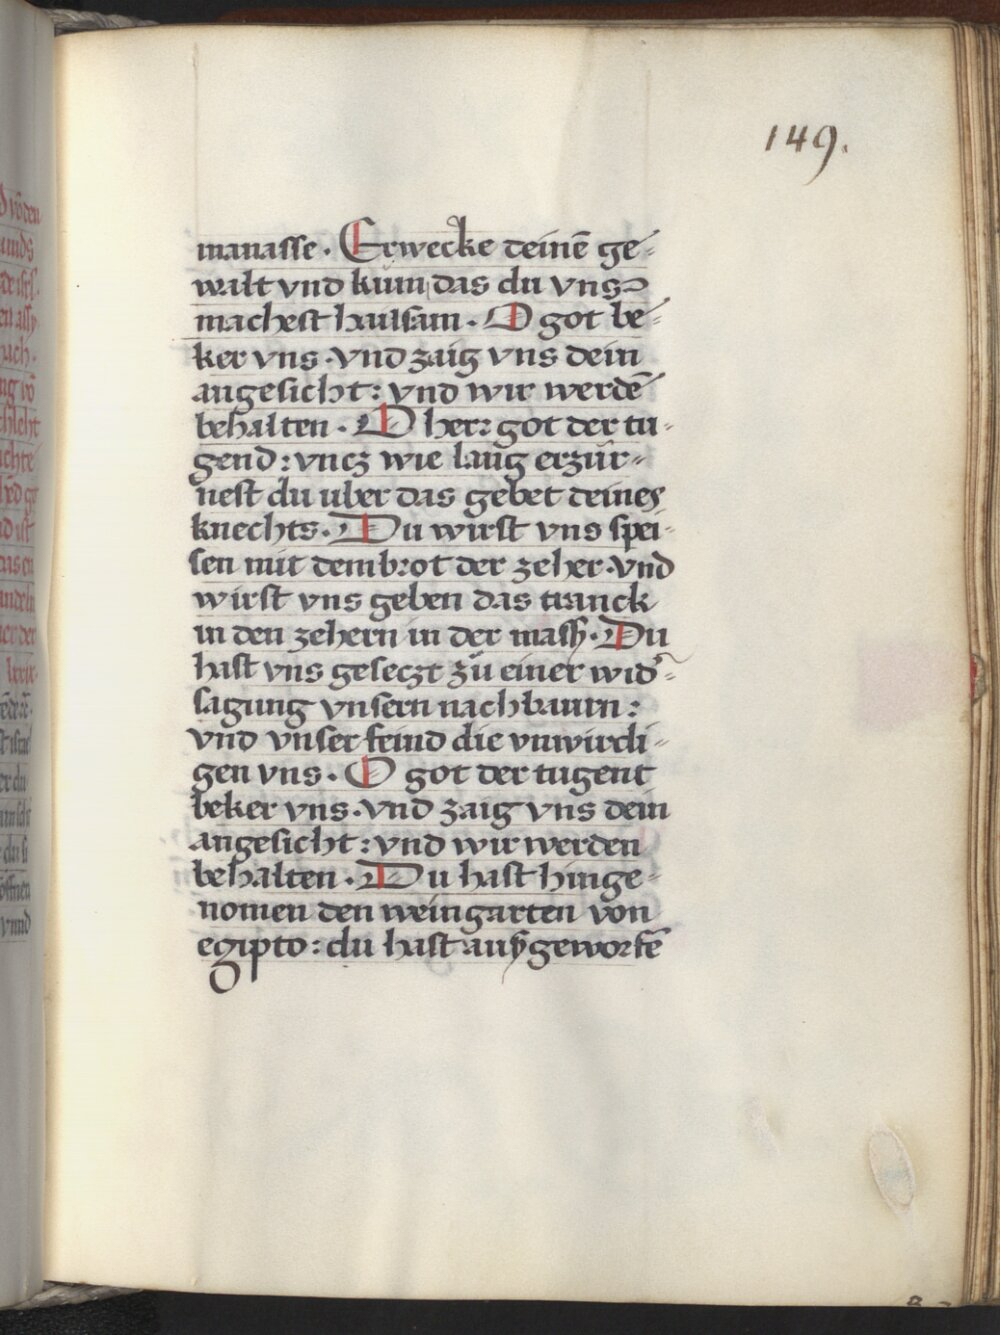 149.
manasse · Erwecke deinē ge-
walt vnd kum das du vns
machest hailsam · O got be-
ker vns · vnd zaig vns dein
angesicht : vnd wir werdē
behalten · O herr got der tu-
gend : vncz wie lang erzür-
nest du uber das gebet deines
knechts · Du wirst vns spei-
sen mit dem brot der zeher · vnd
wirst vns geben das tranck
in den zehern in der massz · Du
hast vns geseczt zů einer wid̕-
sagung vnsern nachbaurn :
vnd vnser feind die vnwirdi-
gen vns · O got der tugent
beker vns · vnd zaig vns dein
angesicht : vnd wir werden
behalten · Du hast hinge-
nomen den weingarten von
egipto : du hast außgeworfē